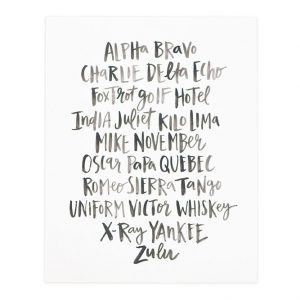 ALPHA BRAVO
CHARLIE DELTA ECHO
FOXTROT GOLF HOTEL
INDIA JULIET KILO LIMA
MIKE NOVEMBER
OSCAR PAPA QUEBEC
ROMEO SIERRA TANGO
UNIFORM VICTOR WHISKEY
X-RAY YANKEE
ZULU